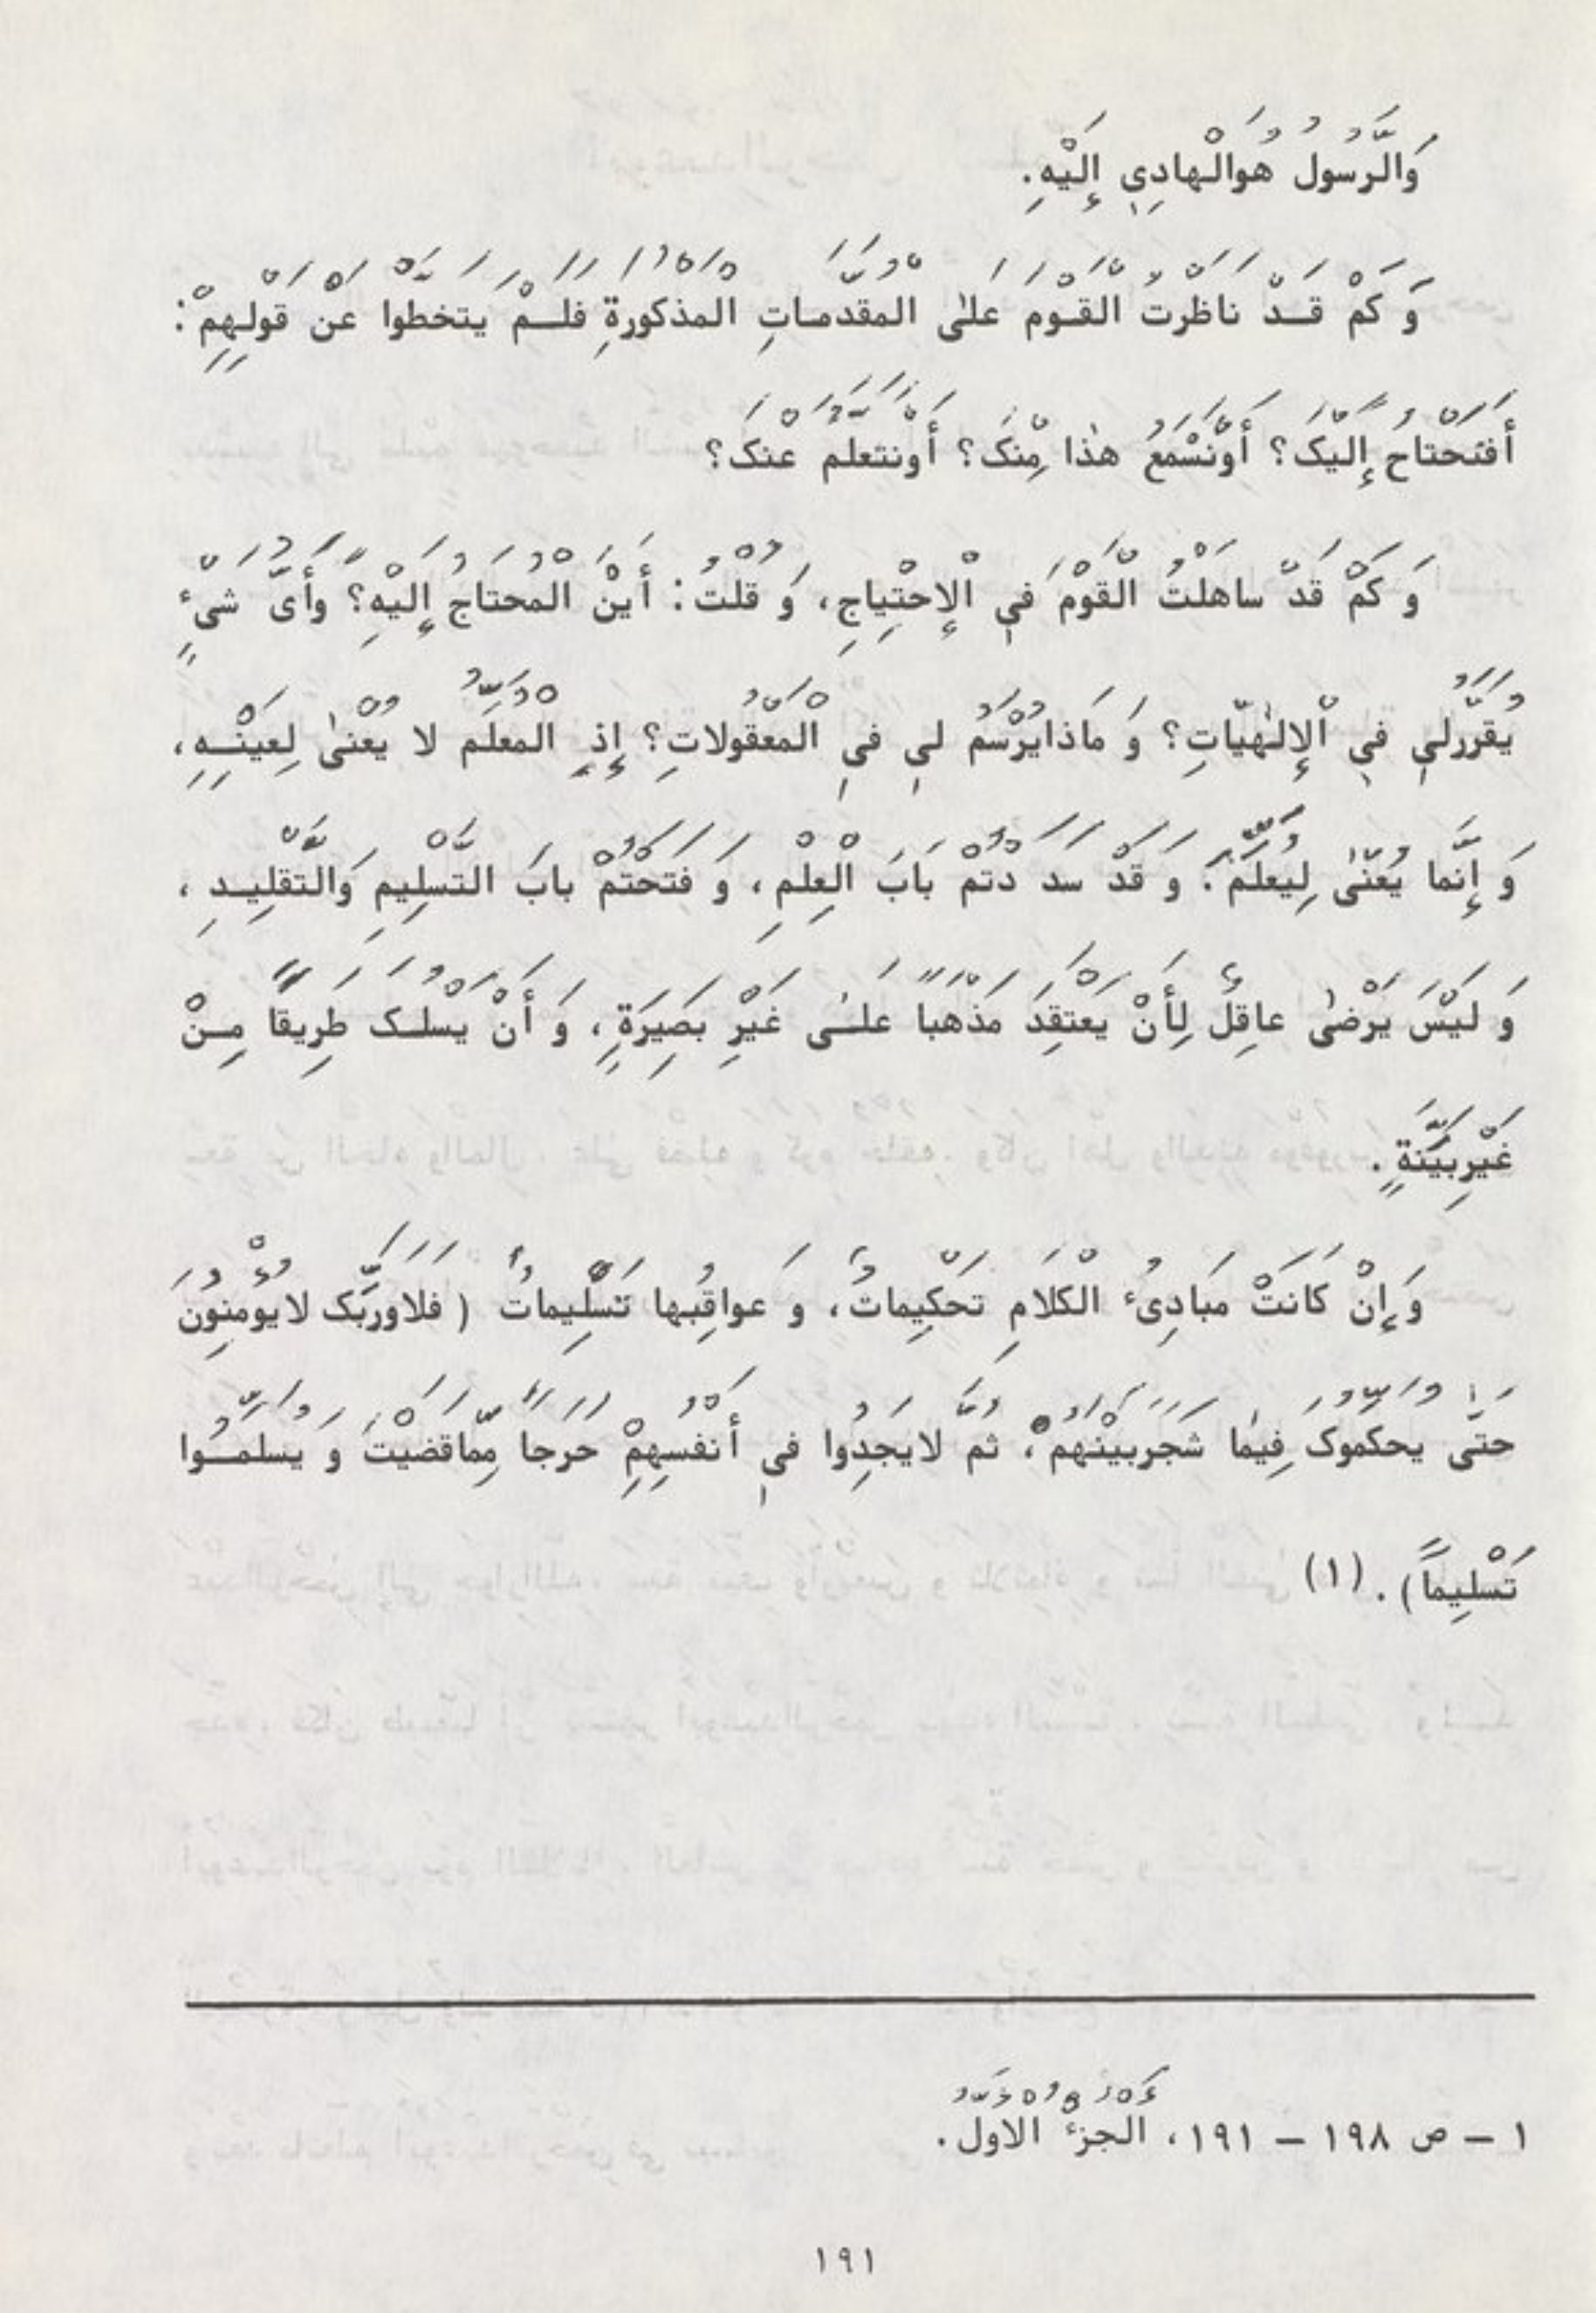 وَالرَّسُولُ هُوَالْهادِي إِلَيْهِ.
وَ كَمْ قَدْ ناظَرْتُ الْقَوْمَ عَلَى الْمُقَدَّماتِ الْمَذْكُورَةِ فَلَمْ يَتَخَطَّوْا عَنْ قَوْلِهِمْ:
أَفَنَحْتاجُ إِلَيْکَ؟ أَوْنَسْمَعُ هٰذا مِنْکَ؟ أَوْنَتَعَلَّمُ عَنْکَ؟
وَ کَمْ قَدْ ساهَلْتُ الْقَوْمَ فِي الْإِحْتِياجِ، وَ قُلْتُ: أَيْنَ الْمُحْتاجُ إِلَيْهِ؟ وَأَىُّ شَىْءٍ
يُقَرَّرُلِي فِي الْإِلٰهِيّاتِ؟ وَ مَاذايُرْسَمُ لِي فِي الْمَعْقُولاتِ؟ إِذِ الْمُعَلِّمُ لا يُعْنىٰ لِعَيْنِهِ،
وَ إِنَّما يُعْنىٰ لِيُعَلِّمَ. وَ قَدْ سَد دْتُمْ بَابَ الْعِلْمِ، وَ فَتَحْتُمْ بابَ التَّسْلِيمِ وَالتَّقْلِيدِ،
وَ لَيْسَ يَرْضىٰ عاقِلٌ لِأَنْ يَعْتَقِدَ مَذْهَباً عَلىٰ غَيْرِ بَصِيرَةٍ، وَ أَنْ يَسْلُکَ طَرِيقاً مِنْ
غَيْرِبَيِّنَةٍ.
وَإِنْ کَانَتْ مَبادِىءُ الْکَلَامِ تَحْکِيماتٌ، وَ عَواقِبُها تَسْلِيماتٌ (فَلاوَرَبِّکَ لايُؤْمِنُونَ
حَتّٰى يُحَکِّمُوکَ فِيمٰا شَجَرَبَيْنَهُمْ، ثُمَّ لايَجِدُوا فِي أَنْفُسِهِمْ حَرَجاً مِمّاقَضَيْتَ وَ يُسَلِّمُوا
تَسْلِيماً). (١)
١ – ص ١٩٨ – ١٩١، الْجُزْءُ الْأَوَّلُ.
١٩١